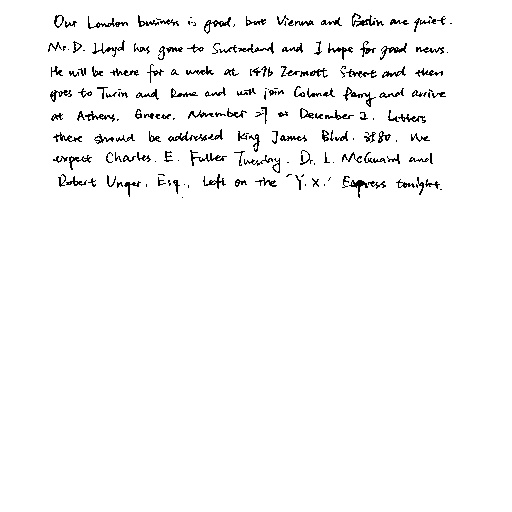 Our London business is good, but Vienna and Berlin are quiet.
Mr. D. Lloyd has gone to Switzerland and I hope for good news.
He will be there for a week at 1496 Zermott Street and then
goes to Turin and Rome and will join Colonel Parry and arrive
at Athens, Greece, November 27 or December 2. Letters
there should be addressed King James Blvd. 3580. We
expect Charles E. Fuller Tuesday. Dr. L. McQuaid and
Robert Unger, Esq., left on the "Y.X." Express tonight.